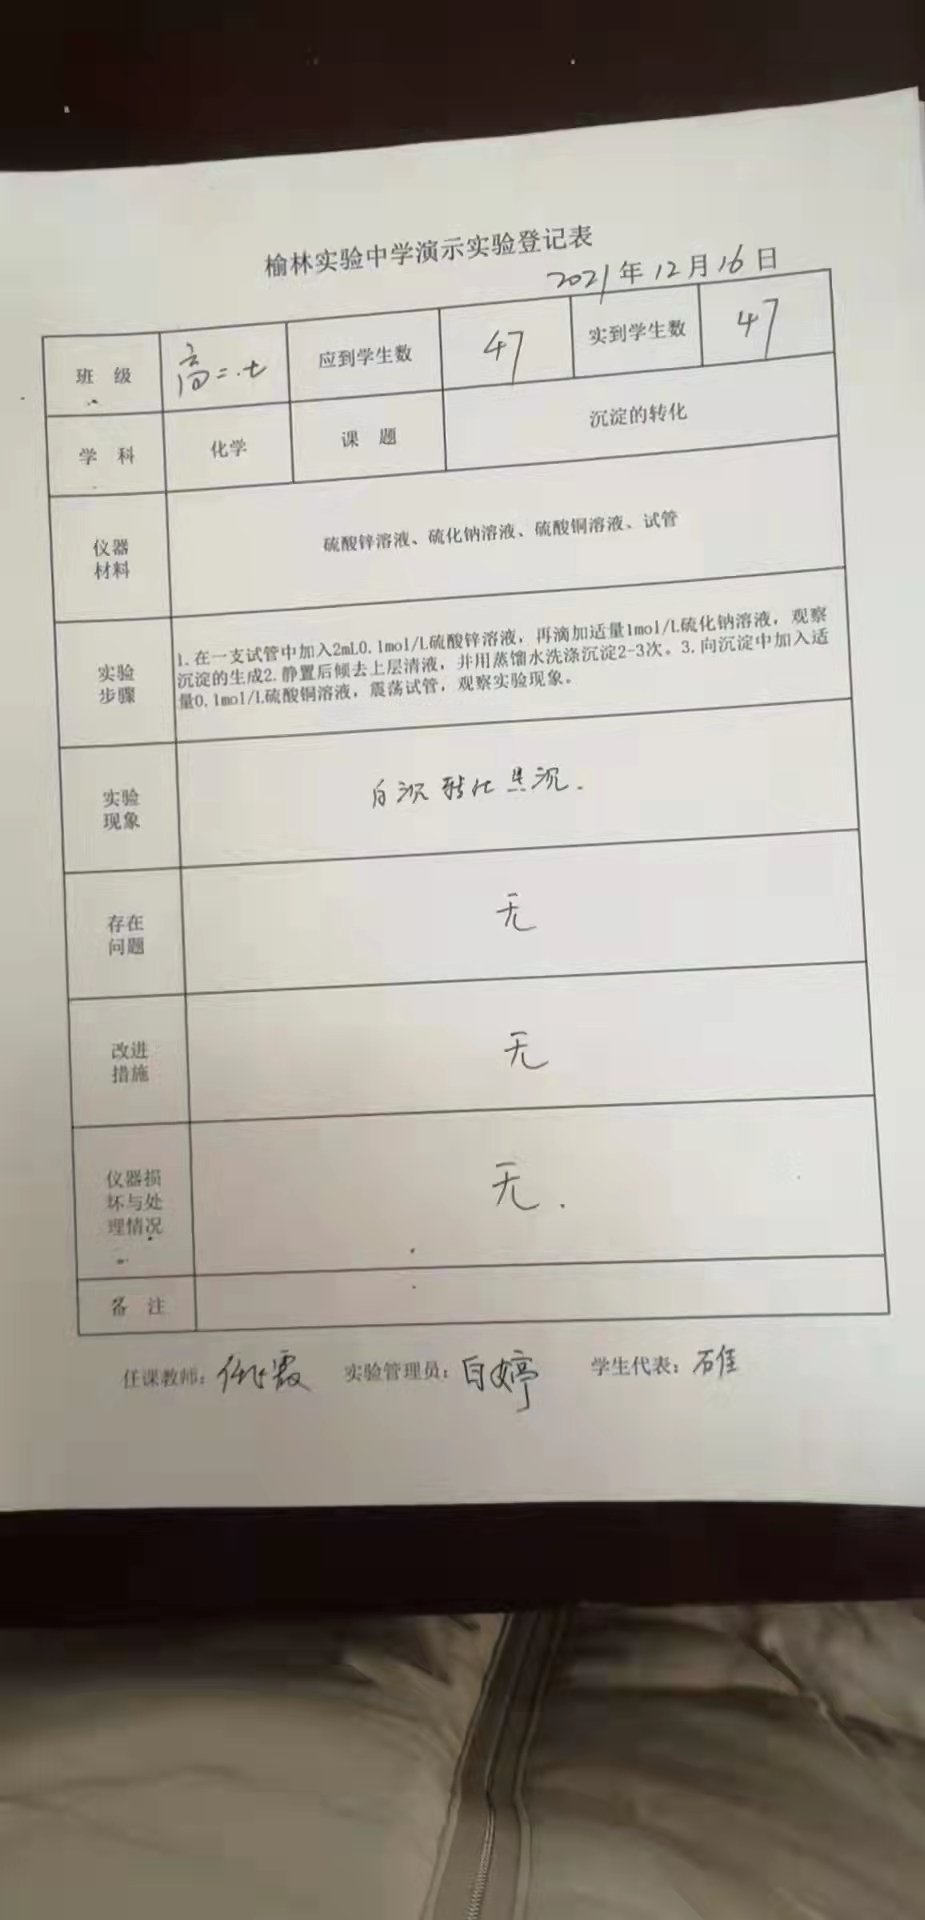 榆林实验中学演示实验登记表
2021年12月16日
班 级 高二.七 应到学生数 47 实到学生数 47
学 科 化学 课 题 沉淀的转化
仪器
材料
硫酸锌溶液、硫化钠溶液、硫酸铜溶液、试管
实验
步骤
1.在一支试管中加入2mL0.1mol/L硫酸锌溶液，再滴加适量1mol/L硫化钠溶液，观察
沉淀的生成2.静置后倾去上层清液，并用蒸馏水洗涤沉淀2-3次。3.向沉淀中加入适
量0.1mol/L硫酸铜溶液，震荡试管，观察实验现象。
实验
现象
白沉转化黑沉.
存在
问题
无
改进
措施
无
仪器损
坏与处
理情况
无.
备 注
任课教师: 实验管理员:白婷 学生代表: